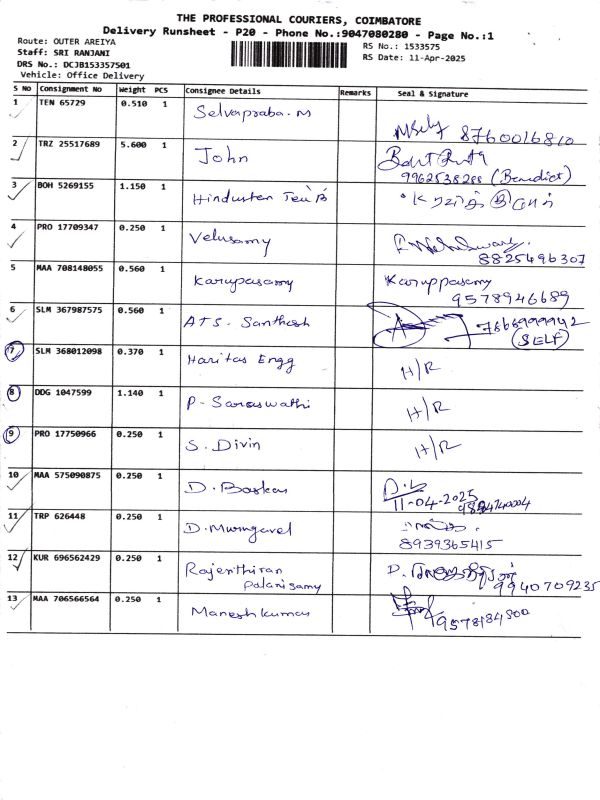 THE PROFESSIONAL COURIERS, COIMBATORE
Delivery Runsheet - P20 - Phone No.:9047080280 - Page No.:1
Route: OUTER AREIYA
Staff: SRI RANJANI
DRS No.: DCJB153357501
Vehicle: Office Delivery
RS No.: 1533575
RS Date: 11-Apr-2025
S No Consignment No Weight PCS Consignee Details Remarks Seal & Signature
1 TEN 65729 0.510 1 Selvapraba. M 8760016810
2 TRZ 25517689 5.600 1 John
9962538288 (Benedict)
3 BOH 5269155 1.150 1 Hindustan
4 PRO 17709347 0.250 1 Velusamy
8825496307
5 MAA 708148055 0.560 1 Karupasamy Karuppasamy
9578946689
6 SLM 367987575 0.560 1 ATS. Santhosh 7666999942
(SELF)
7 SLM 368012098 0.370 1 Haritas Engg H/R
8 DDG 1047599 1.140 1 P. Saraswathi H/R
9 PRO 17750966 0.250 1 S. Divin H/R
10 MAA 575090875 0.250 1 D. Baskar
11-04-2025
11 TRP 626448 0.250 1 D. Murugavel
8939365415
12 KUR 696562429 0.250 1 Rajenthiran
Palanisamy D. 9940709235
13 MAA 706566564 0.250 1 Maneshkumar
9578184500